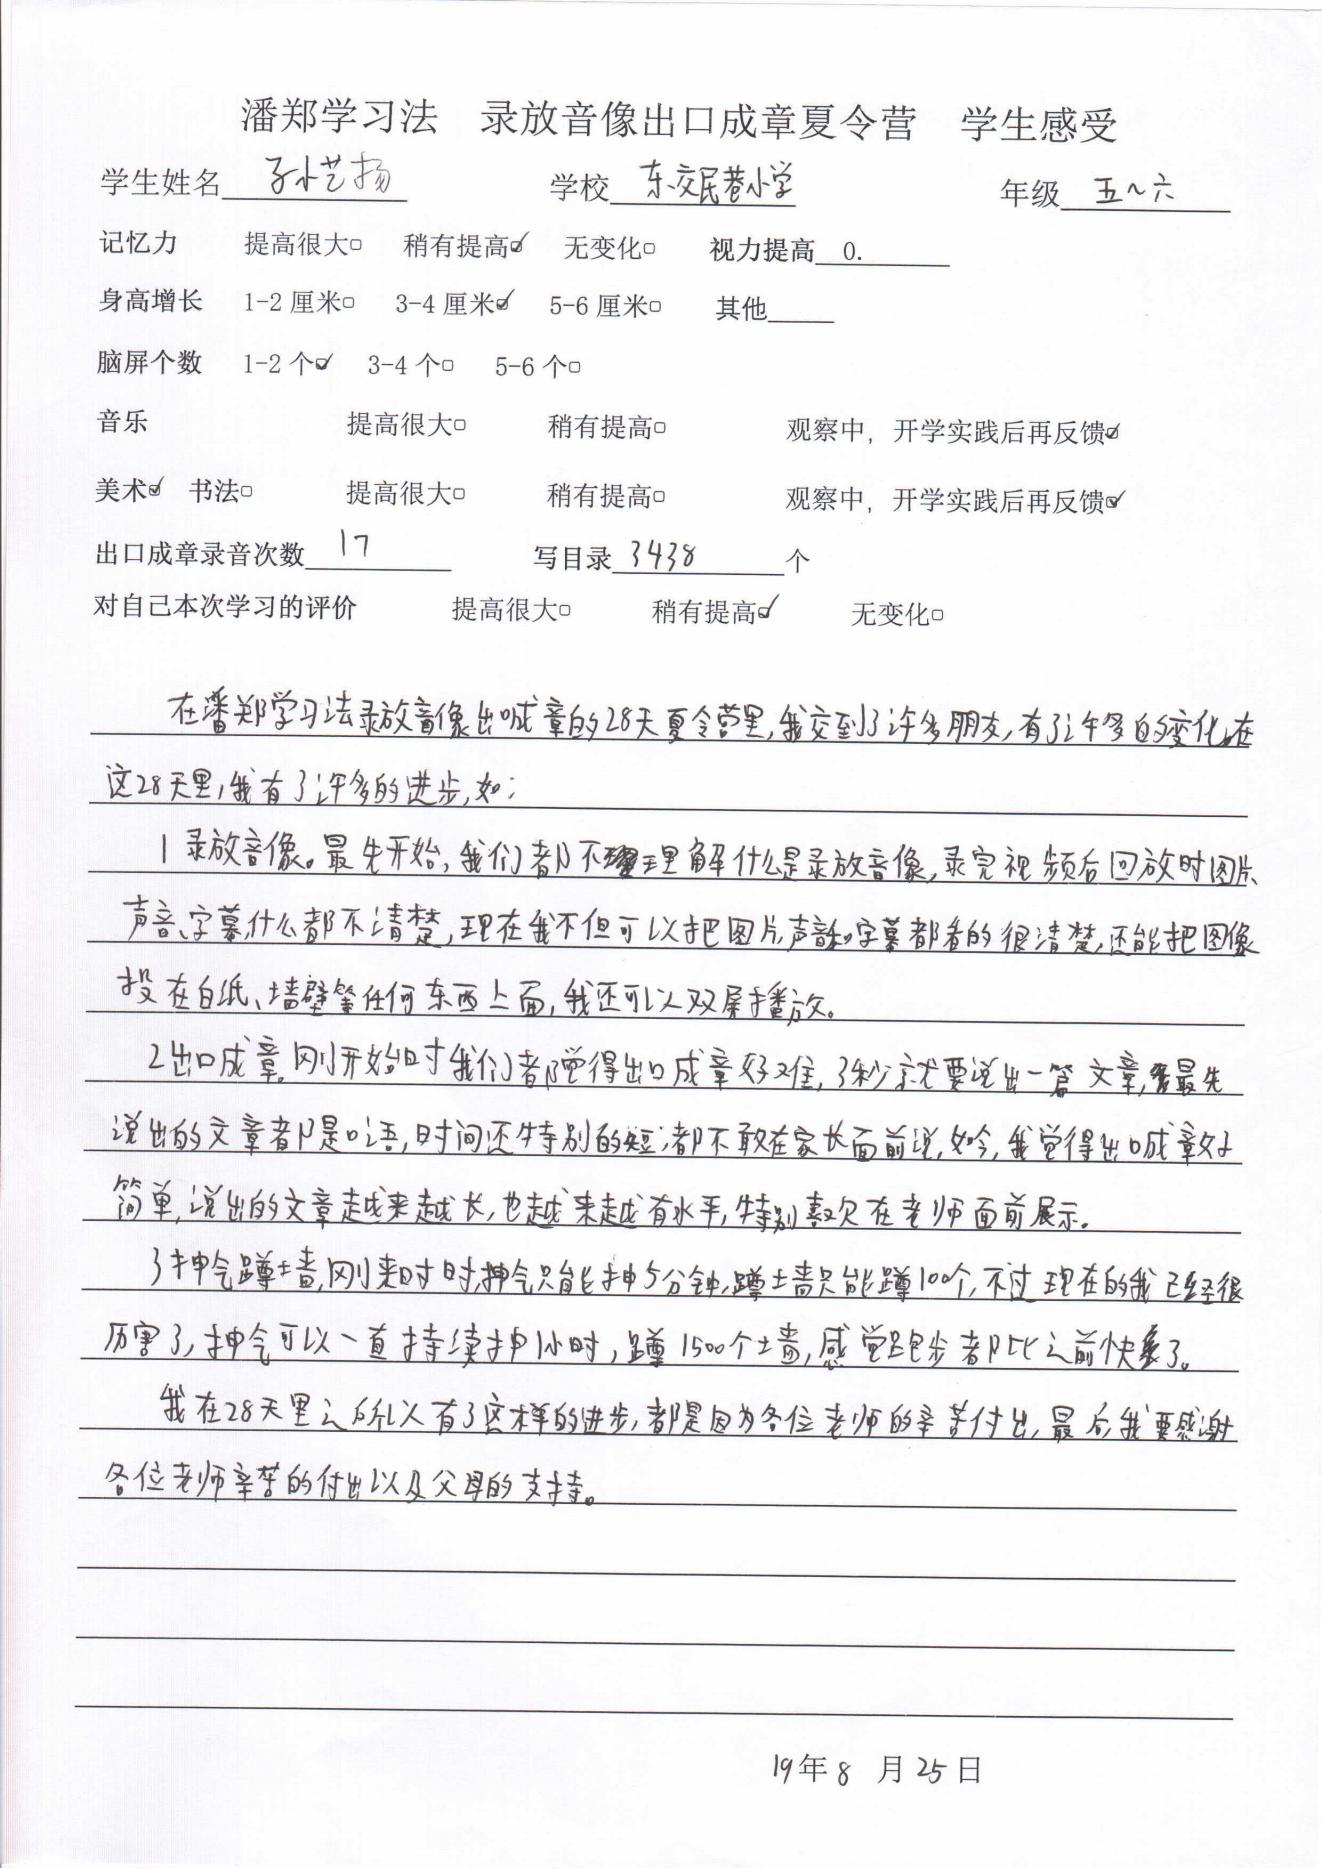 潘郑学习法 录放音像出口成章夏令营 学生感受
学生姓名 孙艺扬 学校 东交民巷小学 年级 五~六
记忆力 提高很大□ 稍有提高☑ 无变化□ 视力提高 0.
身高增长 1-2厘米□ 3-4厘米☑ 5-6厘米□ 其他
脑屏个数 1-2个☑ 3-4个□ 5-6个□
音乐 提高很大□ 稍有提高□ 观察中，开学实践后再反馈☑
美术☑ 书法□ 提高很大□ 稍有提高□ 观察中，开学实践后再反馈☑
出口成章录音次数 17 写目录 3438 个
对自己本次学习的评价 提高很大□ 稍有提高☑ 无变化□
在潘郑学习法录放音像出口成章的28天夏令营里,我交到了许多朋友,有了许多的变化。在
这28天里,我有了许多的进步,如:
1 录放音像。最先开始,我们都不理解什么是录放音像,录完视频后回放时图片、
声音、字幕什么都不清楚,现在我不但可以把图片,声音和字幕都看的很清楚,还能把图像
投在白纸、墙壁等任何东西上面,我还可以双屏播放。
2出口成章。刚开始时我们都觉得出口成章好难,3秒就要说出一篇文章,最先
说出的文章都是口语,时间还特别的短,都不敢在家长面前说,如今,我觉得出口成章好
简单,说出的文章越来越长,也越来越有水平,特别喜欢在老师面前展示。
3抻气蹲墙,刚来时时,抻气只能抻5分钟,蹲墙只能蹲100个,不过现在的我已经很
厉害了,抻气可以一直持续抻1小时,蹲1500个墙,感觉跑步都比之前快了。
我在28天里之所以有了这样的进步,都是因为各位老师的辛苦付出,最后,我要感谢
各位老师辛苦的付出以及父母的支持。
19年8月25日